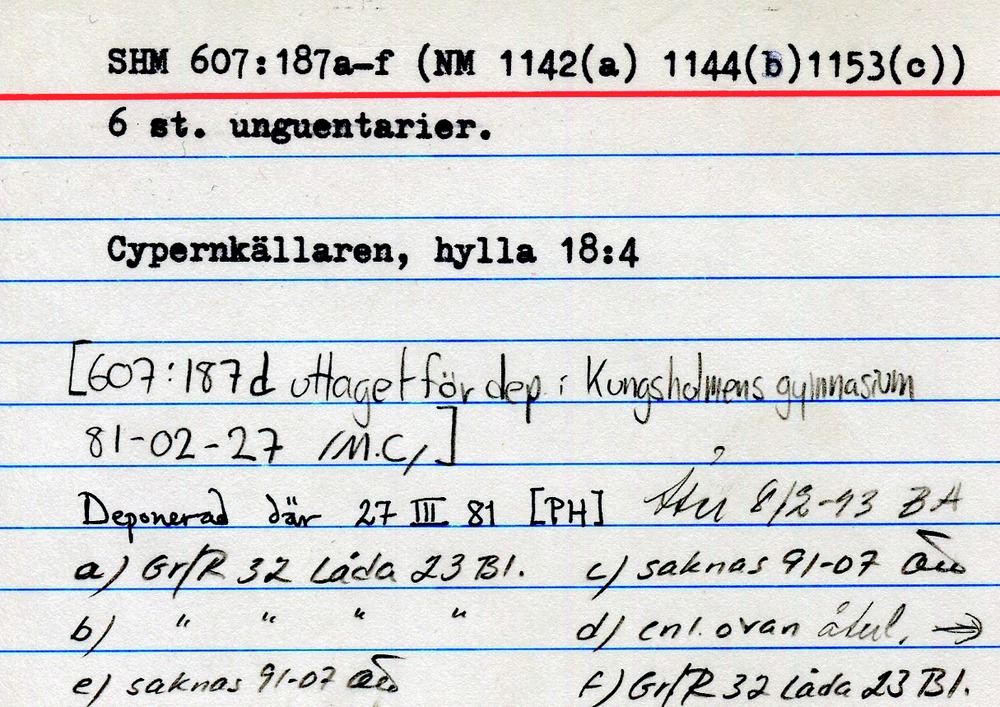 SHM 607:187a-f (NM 1142(a) 1144(b)1153(c))
6 st. unguentarier.
Cypernkällaren, hylla 18:4
[607:187d uttaget för dep i Kungsholmens gymnasium
81-02-27 /M.C/]
Deponerad där 27 III 81 [PH] Åter 8/2-93 BA
a) Gr/R 32 Låda 23 Bl. c) saknas 91-07
b) " " " " d) enl. ovan →
e) saknas 91-07 f) Gr/R 32 Låda 23 Bl.